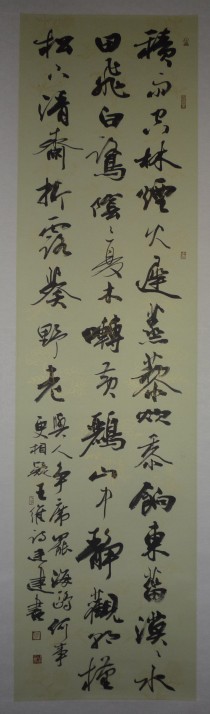 積雨空林煙火遲蒸藜炊黍餉東菑漠〻水
田飛白鷺陰〻夏木囀黃鸝山中靜觀朝槿
松下清齋折露葵野老
與人爭席罷海鷗何事
更相疑王維詩 書